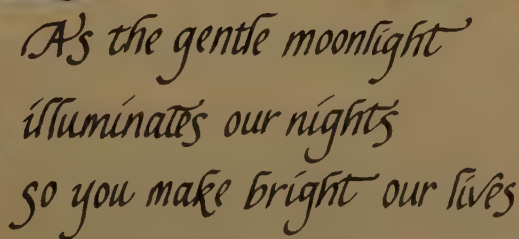 As the gentle moonlight
illuminates our nights
so you make bright our lives